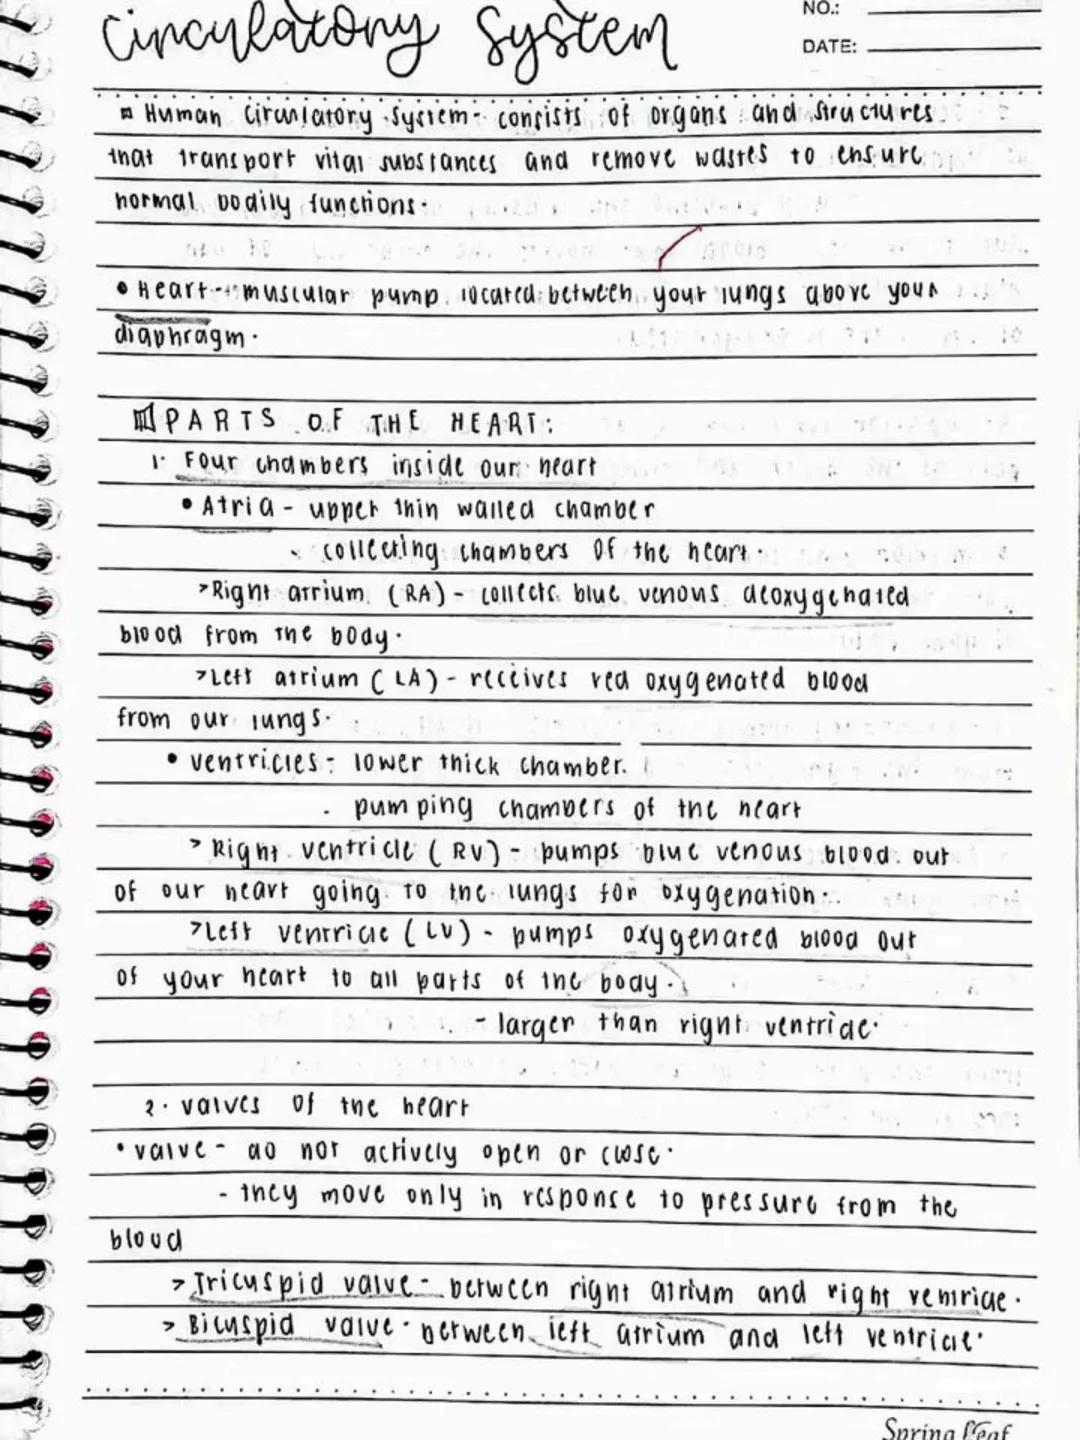 Circulatory System
NO.:
DATE:
Human Circulatory System - consists of organs and structures
that transport vital substances and remove wastes to ensure
normal bodily functions.
• Heart - muscular pump located between your lungs above your
diaphragm.
PARTS OF THE HEART:
1. Four chambers inside our heart
• Atria - upper thin walled chamber
- collecting chambers of the heart.
>Right atrium (RA) - collects blue venous deoxygenated
blood from the body.
>Left atrium (LA) - receives red oxygenated blood
from our lungs.
• ventricles - lower thick chamber.
- pumping chambers of the heart
> Right ventricle (RV) - pumps blue venous blood out
of our heart going to the lungs for oxygenation.
>Left ventricle (LV) - pumps oxygenated blood out
of your heart to all parts of the body.
- larger than right ventricle.
2. valves of the heart
• valve - do not actively open or close.
- they move only in response to pressure from the
blood
> Tricuspid valve - between right atrium and right ventricle.
> Bicuspid valve - between left atrium and left ventricle.
Spring Leaf